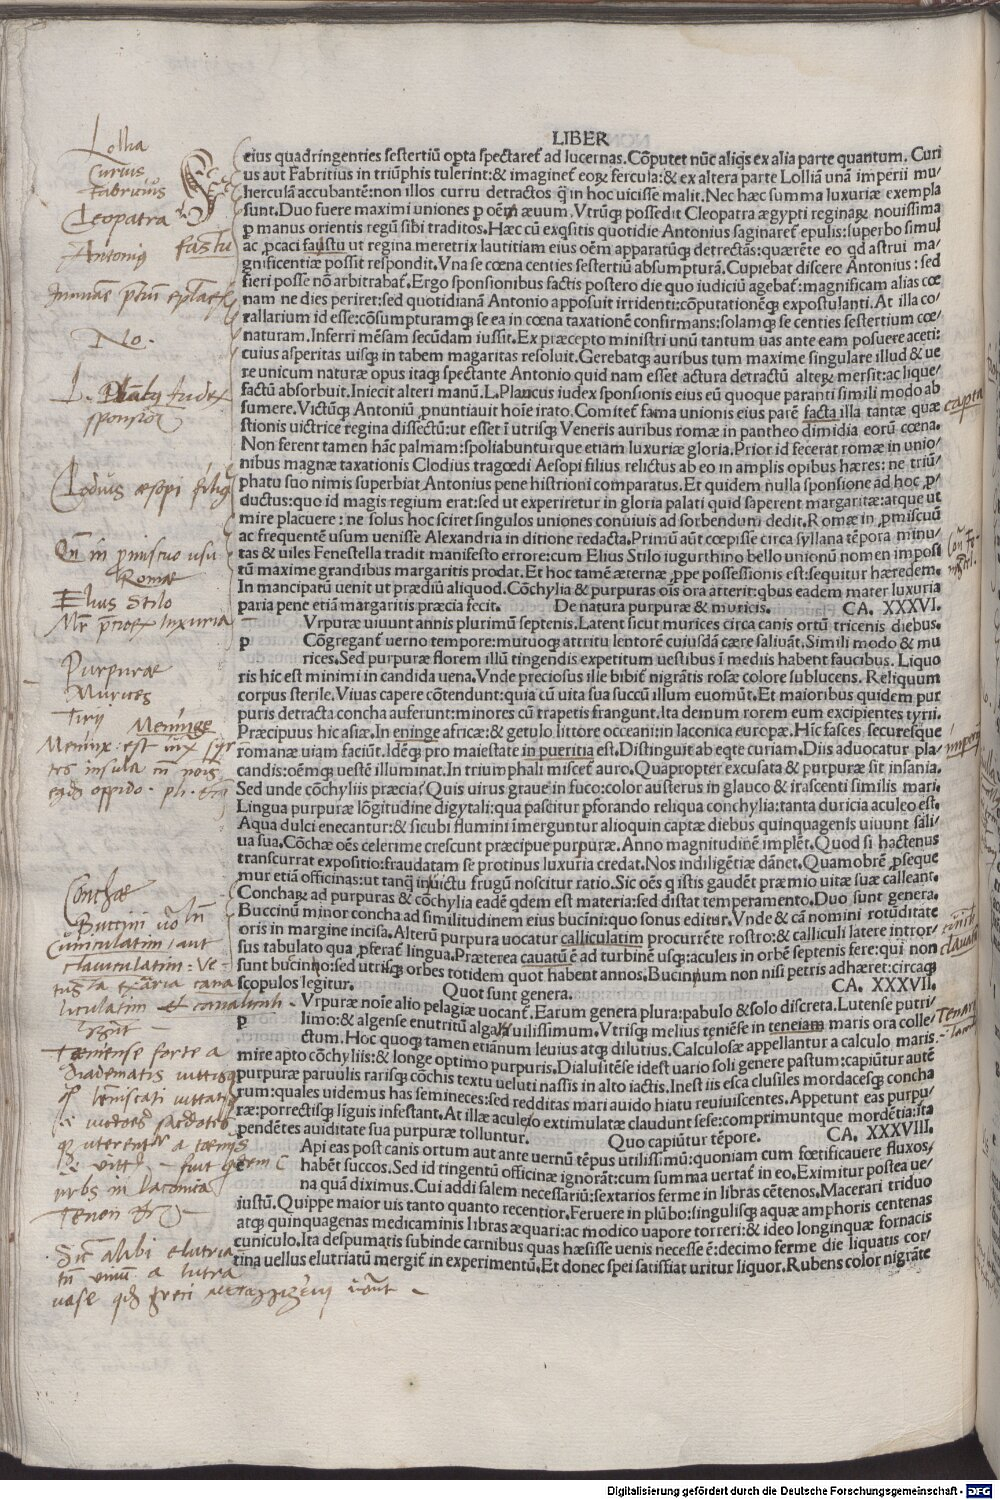 LIBER
eius quadringenties sestertiū opta spectaret̄ ad lucernas. Cōputet nūc aliq̄s ex alia parte quantum. Curi
us aut Fabritius in triūphis tulerint: & imaginet̄ eoꝝ fercula: & ex altera parte Lolliā unā imperii mu/
herculā accubantē: non illos curru detractos q̄ in hoc uicisse malit. Nec hæc summa luxuriæ exempla
sunt. Duo fuere maximi uniones p oēm æuum. Vtrūq; possedit Cleopatra ægypti reginaꝝ nouissima
p manus orientis regū sibi traditos. Hæc cū exq̄sitis quotidie Antonius saginaret̄ epulis: superbo simul
ac ꝓcaci faustu ut regina meretrix lautitiam eius oēm apparatūq; detrectās: quærēte eo qd astrui ma/
gnificentiæ possit respondit. Vna se cœna centies sestertiū absumpturā. Cupiebat discere Antonius: sed
fieri posse nō arbitrabat̄. Ergo sponsionibus factis postero die quo iudiciū agebat̄: magnificam alias cœ
nam ne dies periret: sed quotidianā Antonio apposuit irridenti: cōputationēq; expostulanti. At illa co/
rallarium id esse: cōsumpturamq; se ea in cœna taxationē confirmans: solamq; se centies sestertium cœ/
naturam. Inferri mēsam secūdam iussit. Ex præcepto ministri unū tantum uas ante eam posuere aceti:
cuius asperitas uisq; in tabem magaritas resoluit. Gerebatq; auribus tum maxime singulare illud & ue
re unicum naturæ opus itaq; spectante Antonio quid nam esset actura detractū alteꝝ mersit: ac lique/
factū absorbuit. Iniecit alteri manū. L. Plancus iudex sponsionis eius eū quoque paranti simili modo ab
sumere. Victūq; Antoniū ꝓnuntiauit hoīe irato. Comitet̄ fama unionis eius parē facta illa tantæ quæ
stionis uictrice regina dissectū: ut esset ī utrisq; Veneris auribus romæ in pantheo dimidia eorū cœna.
Non ferent tamen hāc palmam: spoliabuntur que etiam luxuriæ gloria. Prior id fecerat romæ in unio/
nibus magnæ taxationis Clodius tragœdi Aesopi filius relictus ab eo in amplis opibus hæres: ne triū/
phatu suo nimis superbiat Antonius pene histrioni comparatus. Et quidem nulla sponsione ad hoc ꝓ/
ductus: quo id magis regium erat: sed ut experiretur in gloria palati quid saperent margaritæ: atque ut
mire placuere: ne solus hoc sciret singulos uniones conuiuis ad sorbendum dedit. Romæ in ꝓmiscuū
ac frequentē usum uenisse Alexandria in ditione redacta. Primū aūt cœpisse circa syllana tēpora minu/
tas & uiles Fenestella tradit manifesto errore: cum Elius Stilo iugurthino bello unionū nomen imposi
tū maxime grandibus margaritis prodat. Et hoc tamē æternæ ꝓpe possessionis est: sequitur hæredem.
In mancipatū uenit ut prædiū aliquod. Cōchylia & purpuras oīs ora atterit: qbus eadem mater luxuria
paria pene etiā margaritis præcia fecit. De natura purpuræ & muricis. CA. XXXVI.
p Vrpuræ uiuunt annis plurimū septenis. Latent sicut murices circa canis ortū tricenis diebus.
Cōgregant̄ uerno tempore: mutuoq; attritu lentorē cuiusdā cæræ saliuāt. Simili modo & mu
rices. Sed purpuræ florem illū tingendis expetitum uestibus ī mediis habent faucibus. Liquo
ris hic est minimi in candida uena. Vnde preciosus ille bibit̄ nigrātis rosæ colore sublucens. Reliquum
corpus sterile. Viuas capere cōtendunt: quia cū uita sua succū illum euomūt. Et maioribus quidem pur
puris detracta concha auferunt: minores cū trapetis frangunt. Ita demum rorem eum excipientes tyrii.
Præcipuus hic asiæ. In eninge africæ: & getulo littore occeani: in laconica europæ. Hīc fasces securesque
romanæ uiam faciūt. Idēq; pro maiestate in pueritia est. Distinguit ab eqte curiam. Diis aduocatur pla/
candis: oēmq; uestē illuminat. In triumphali miscet̄ auro. Quapropter excusata & purpuræ sit insania.
Sed unde cōchyliis præcia? Quis uirus graue in fuco: color austerus in glauco & irascenti similis mari.
Lingua purpuræ lōgitudine digytali: qua pascitur ꝑforando reliqua conchylia: tanta duricia aculeo est.
Aqua dulci enecantur: & sicubi flumini īmerguntur alioquin captæ diebus quinquagenis uiuunt sali/
ua sua. Cōchæ oēs celerime crescunt præcipue purpuræ. Anno magnitudinē implēt. Quod si hactenus
transcurrat expositio: fraudatam se protinus luxuria credat. Nos indiligētiæ dānet. Quamobrē ꝑseque
mur etiā officinas: ut tanq̄ in uictu frugū noscitur ratio. Sic oēs q istis gaudēt præmio uitæ suæ calleant.
Conchaꝝ ad purpuras & cōchylia eadē qdem est materia: sed distat temperamento. Duo sunt genera.
Buccinū minor concha ad similitudinem eius bucini: quo sonus editur. Vnde & cā nomini rotūditate
oris in margine incisa. Alterū purpura uocatur calliculatim procurrēte rostro: & calliculi latere intror/
sus tabulato qua ꝓferat̄ lingua. Præterea cauatū ē ad turbinē usq; aculeis in orbē septenis fere: qui non
sunt bucinno: sed utrisq; orbes totidem quot habent annos. Bucinnum non nisi petris adhæret: circaq;
scopulos legitur. Quot sunt genera. CA. XXXVII.
p Vrpuræ noīe alio pelagiæ uocant̄. Earum genera plura: pabulo & solo discreta. Lutense putri/
limo: & algense enutritū alga uilissimum. Vtrisq; melius teniēse in teneiam maris ora colle/
ctum. Hoc quoq; tamen etiānum leuius atq; dilutius. Calculosæ appellantur a calculo maris
mire apto cōchyliis: & longe optimo purpuris. Dialusitēse idest uario soli genere pastum: capiūtur autē
purpuræ paruulis rarisq; cōchis textu ueluti nassis in alto iactis. Inest iis esca clusiles mordacesq; concha
rum: quales uidemus has semineces: sed redditas mari auido hiatu reuiuiscentes. Appetunt eas purpu/
ræ: porrectisq; liguis infestant. At illæ aculeo extimulatæ claudunt sese: comprimuntque mordētia: ita
pendētes auiditate sua purpuræ tolluntur. Quo capiūtur tēpore. CA. XXXVIII.
c Api eas post canis ortum aut ante uernū tēpus utilissimū: quoniam cum fœtificauere fluxos/
habēt succos. Sed id tingentū officinæ ignorāt: cum summa uertat̄ in eo. Eximitur postea ue/
na quā diximus. Cui addi salem necessariū: sextarios ferme in libras cētenos. Macerari triduo
iustū. Quippe maior uis tanto quanto recentior. Feruere in plūbo: singulisq; aquæ amphoris centenas
atq; quinquagenas medicaminis libras æquari: ac modico uapore torreri: & ideo longinquæ fornacis
cuniculo. Ita despumatis subinde carnibus quas hæsisse uenis necesse ē: decimo ferme die liquatis cor/
tina uellus elutriatū mergit̄ in experimentū. Et donec spei satisfiat uritur liquor. Rubens color nigrāte
Lollia
Curius
Fabricius
Cleopatra
Antonius
fastu
No.
L. Plancus Iudex
sponsionis
Clodius æsopi filius
Romæ
Elius Stilo
Purpuræ
Murices
Tirij
Meninge
Conchæ
Buccini
cuniculatim aut
clauiculatim
capta
Digitalisierung gefördert durch die Deutsche Forschungsgemeinschaft - DFG